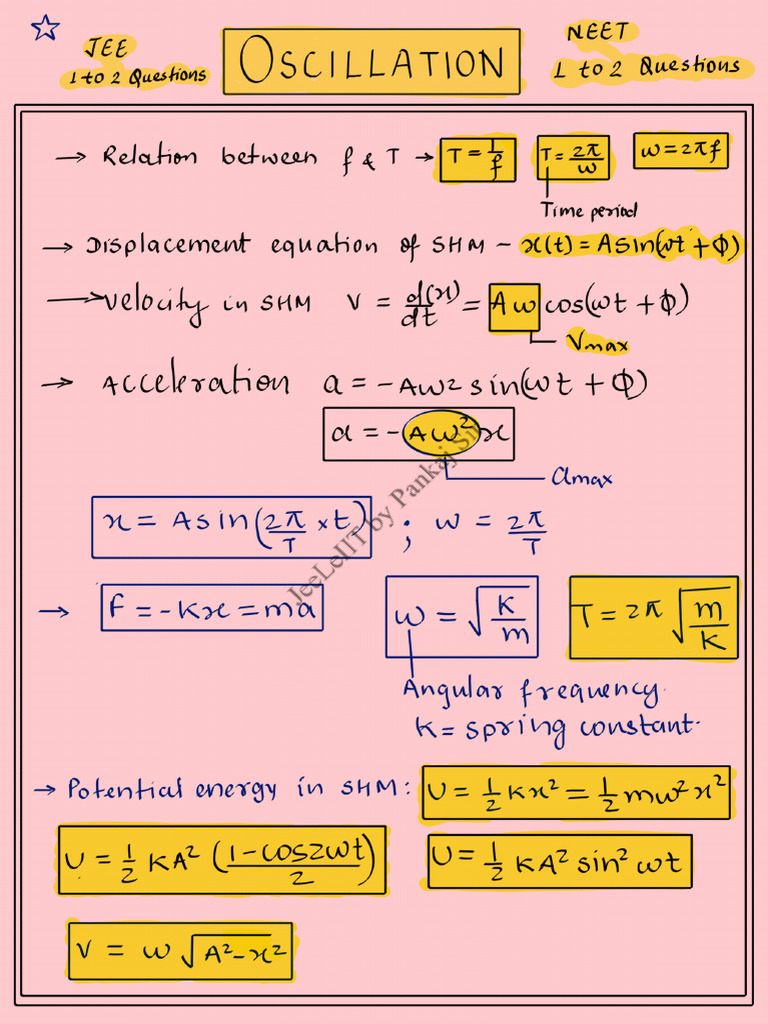 ☆ JEE
1 to 2 Questions
OSCILLATION
NEET
1 to 2 Questions
→ Relation between f & T → T = 1/f T = 2π/ω ω = 2πf
Time period
→ Displacement equation of SHM – x(t) = A sin(ωt + Φ)
→ Velocity in SHM V = d(x)/dt = Aω cos(ωt + Φ)
Vmax
→ Acceleration a = -Aω2 sin(ωt + Φ)
a = -Aω²x
amax
x = A sin(2π/T × t) ; ω = 2π/T
→ F = -kx = ma ω = √(k/m) T = 2π √(m/k)
Angular frequency.
K = spring constant.
→ Potential energy in SHM: U = 1/2 Kx² = 1/2 mω²x²
U = 1/2 KA² (1 - cos2ωt)/2 U = 1/2 KA² sin² ωt
V = ω √(A² - x²)
JeeLeIIT by Pankaj Sir